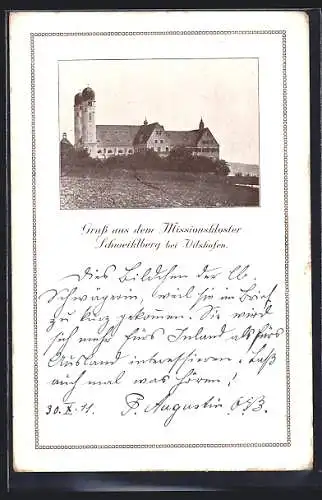 Gruß aus dem Missionskloster
Schweiklberg bei Vilshofen.
Dies Bildchen der lb.
Schwägerin, weil sie im Brief
zu kurz gekommen. Sie wird
sich mehr fürs Inland als fürs
Ausland interessieren. Laß
auch mal was hören!
30.X.11. P. Augustin OSB.